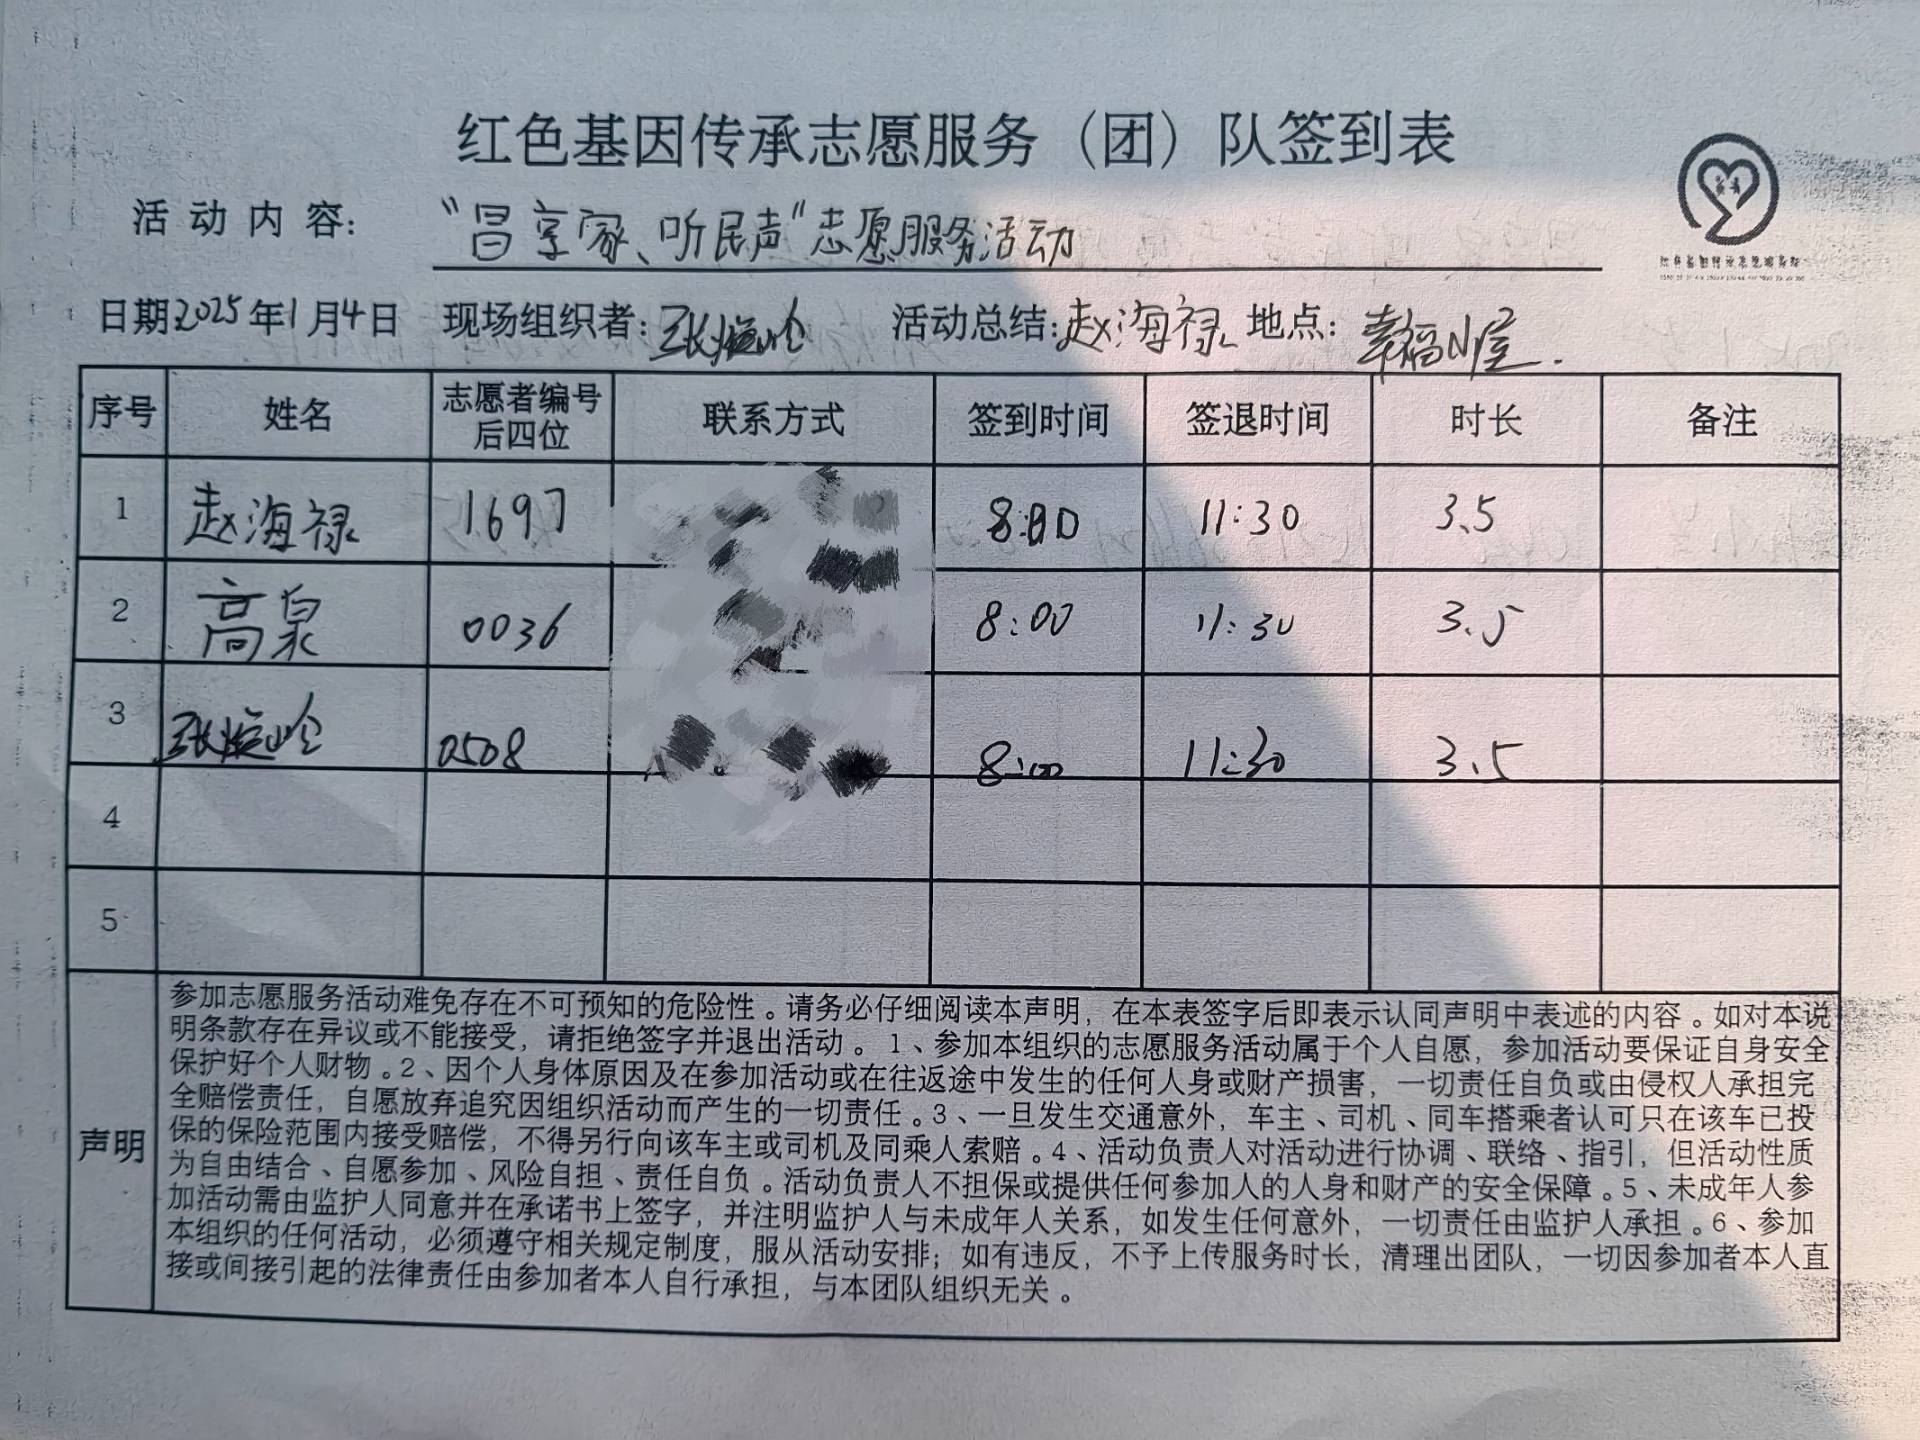 红色基因传承志愿服务（团）队签到表
活动内容：“昌享家、听民声”志愿服务活动
日期2025年1月4日 现场组织者： 活动总结：赵海禄 地点：幸福小屋.
序号 姓名 志愿者编号后四位 联系方式 签到时间 签退时间 时长 备注
1 赵海禄 1697 8:00 11:30 3.5
2 高泉 0036 8:00 11:30 3.5
3 0508 8:00 11:30 3.5
4
5
声明
参加志愿服务活动难免存在不可预知的危险性。请务必仔细阅读本声明，在本表签字后即表示认同声明中表述的内容。如对本说
明条款存在异议或不能接受，请拒绝签字并退出活动。1、参加本组织的志愿服务活动属于个人自愿，参加活动要保证自身安全
保护好个人财物。2、因个人身体原因及在参加活动或在往返途中发生的任何人身或财产损害，一切责任自负或由侵权人承担完
全赔偿责任，自愿放弃追究因组织活动而产生的一切责任。3、一旦发生交通意外，车主、司机、同车搭乘者认可只在该车已投
保的保险范围内接受赔偿，不得另行向该车主或司机及同乘人索赔。4、活动负责人对活动进行协调、联络、指引，但活动性质
为自由结合、自愿参加、风险自担、责任自负。活动负责人不担保或提供任何参加人的人身和财产的安全保障。5、未成年人参
加活动需由监护人同意并在承诺书上签字，并注明监护人与未成年人关系，如发生任何意外，一切责任由监护人承担。6、参加
本组织的任何活动，必须遵守相关规定制度，服从活动安排；如有违反，不予上传服务时长，清理出团队，一切因参加者本人直
接或间接引起的法律责任由参加者本人自行承担，与本团队组织无关。